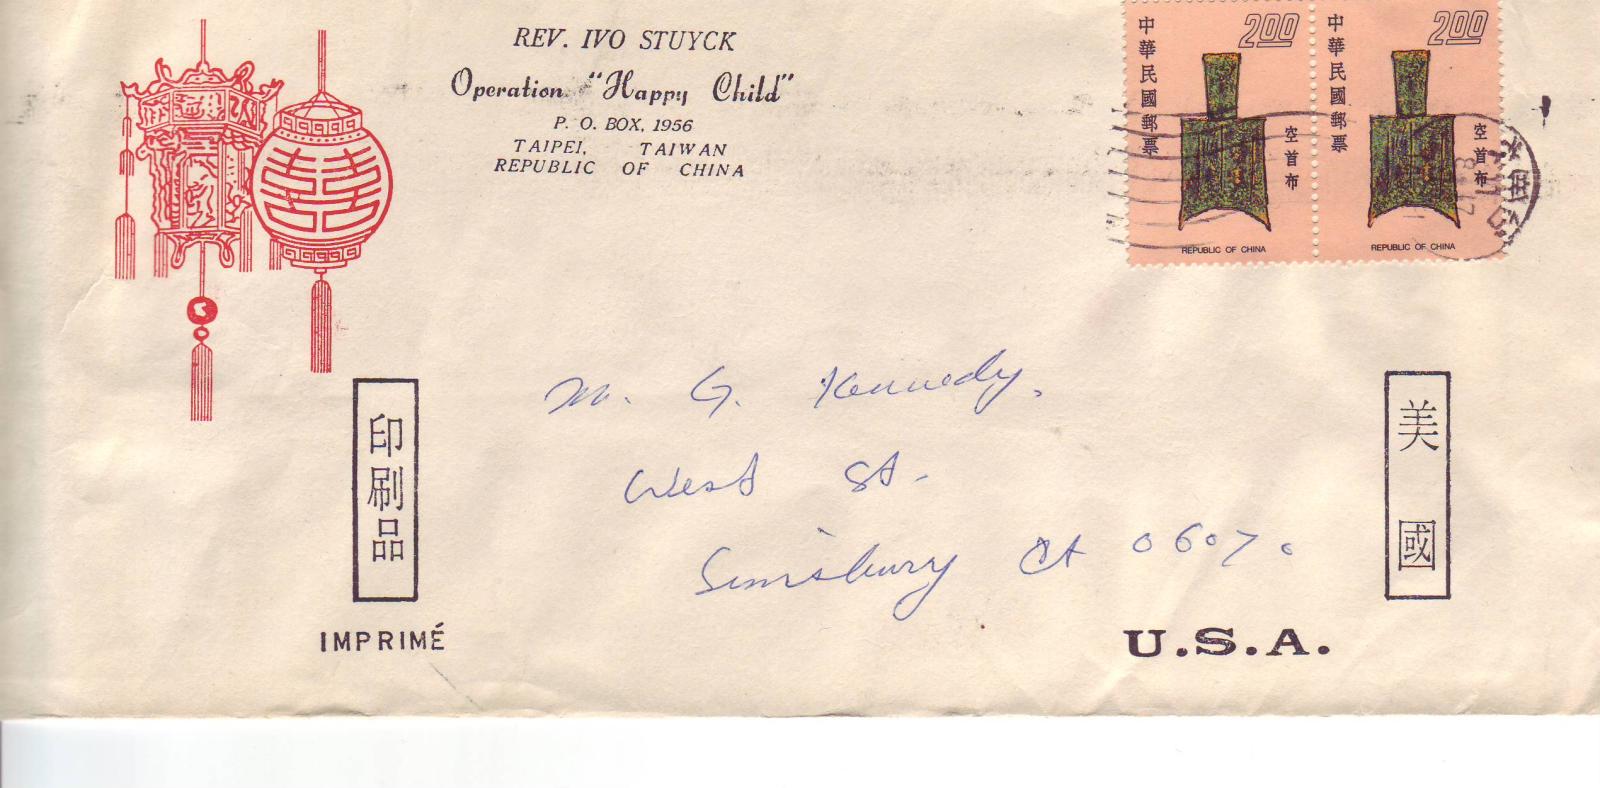 REV. IVO STUYCK
Operation "Happy Child"
P. O. BOX, 1956
TAIPEI, TAIWAN
REPUBLIC OF CHINA
中華民國郵票
2.00
空首布
REPUBLIC OF CHINA
中華民國郵票
2.00
空首布
REPUBLIC OF CHINA
M. G. Kennedy.
West St.
Simsbury Ct 06070
印刷品
IMPRIMÉ
美國
U.S.A.